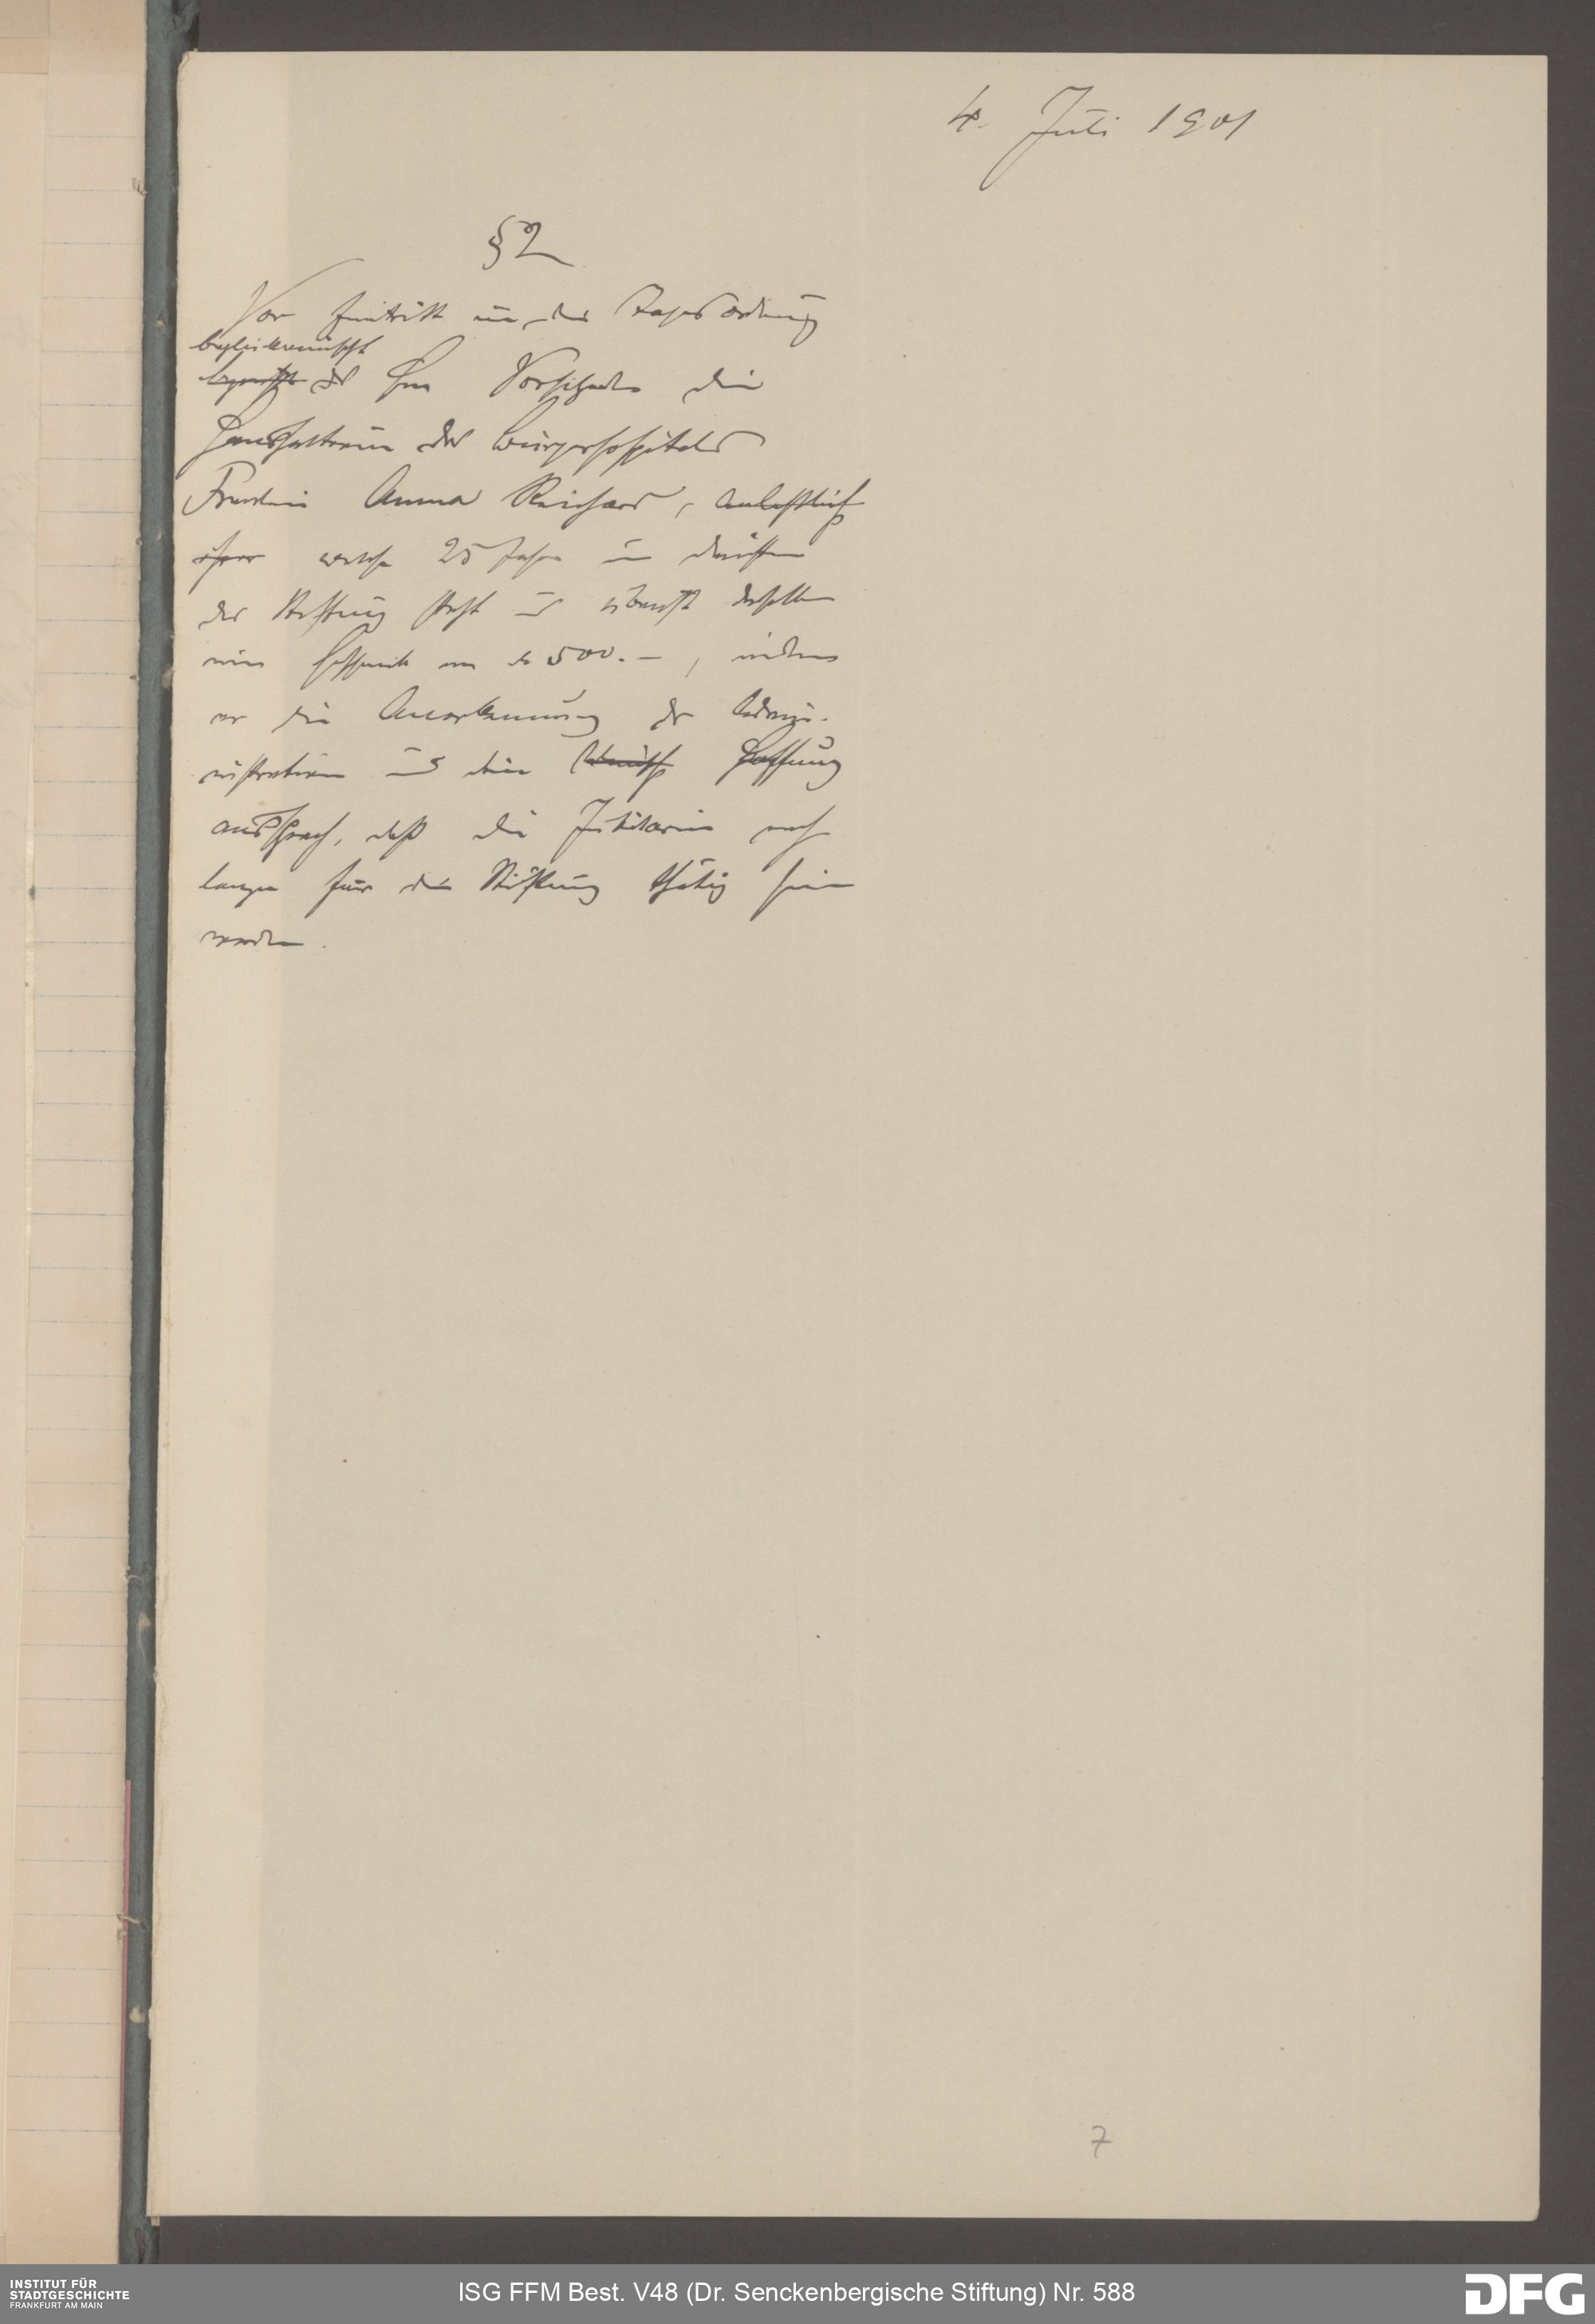 4. Juli 1901
§ 2
Vor Eintritt in die Tagesordnung
beglückwünscht
begrüßt der Herr Vorsitzende die
Haushälterin des Bürgerhospitals
Fräulein Anna Reichard, anläßlich
ihrer welche 25 Jahre in Diensten
der Stiftung steht u überreicht derselben
ein Geschenk von M 500.–, indem
er die Anerkennung der Admi-
nistration und die Hoffnung
aussprach, daß die Jubilarin noch
lange für die Stiftung thätig sein
werde.
7
INSTITUT FÜR
STADTGESCHICHTE
FRANKFURT AM MAIN
ISG FFM Best. V48 (Dr. Senckenbergische Stiftung) Nr. 588
DFG